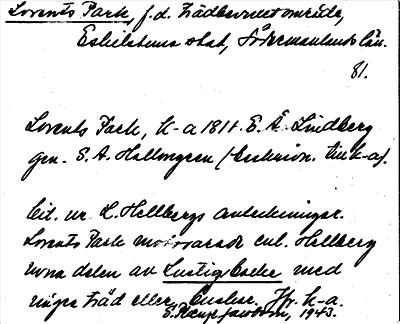 Lorents Park, f.d. trädbevuxet område,
Eskilstuna stad, Södermanlands län.
81.
Lorents Park, k-a 1811. E. Å. Lindberg
gen. E. A. Hallongren (till k-a).
Cit. ur L. Hellbergs anteckningar.
Lorents Park motsvarade enl. Hellberg
norra delen av Lustigbacke med
några träd eller buskar. Jfr. k-a.
1943.